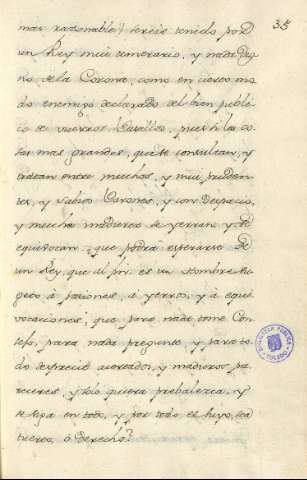 35
mas razonable) sereis tenido por
un Rey mui temerario, y nada Dig
no de la Corona, como en cierto mo
do enemigo declarado del bien publi
co de vuestros Vasallos, pues si las co
sas mas grandes, que se consultan, y
tratan entre muchos, y mui pruden
tes, y sabios Varones, y con Despacio,
y mucha madurez se yerran, y se
equivocan, que podrá esperarse de
un Rey, que al fin es un Hombre su
geto á pasiones, á yerros, y á equi
vocaciones, que para nada tome Con
sejo, para nada pregunte, y para to
do desprecie acertados, y maduros pa
receres, y solo quiera prebalezca, y
se siga en todo, y por todo el suyo,
tuerto, ó derecho?
BIBLIOTECA PUBLICA
TOLEDO